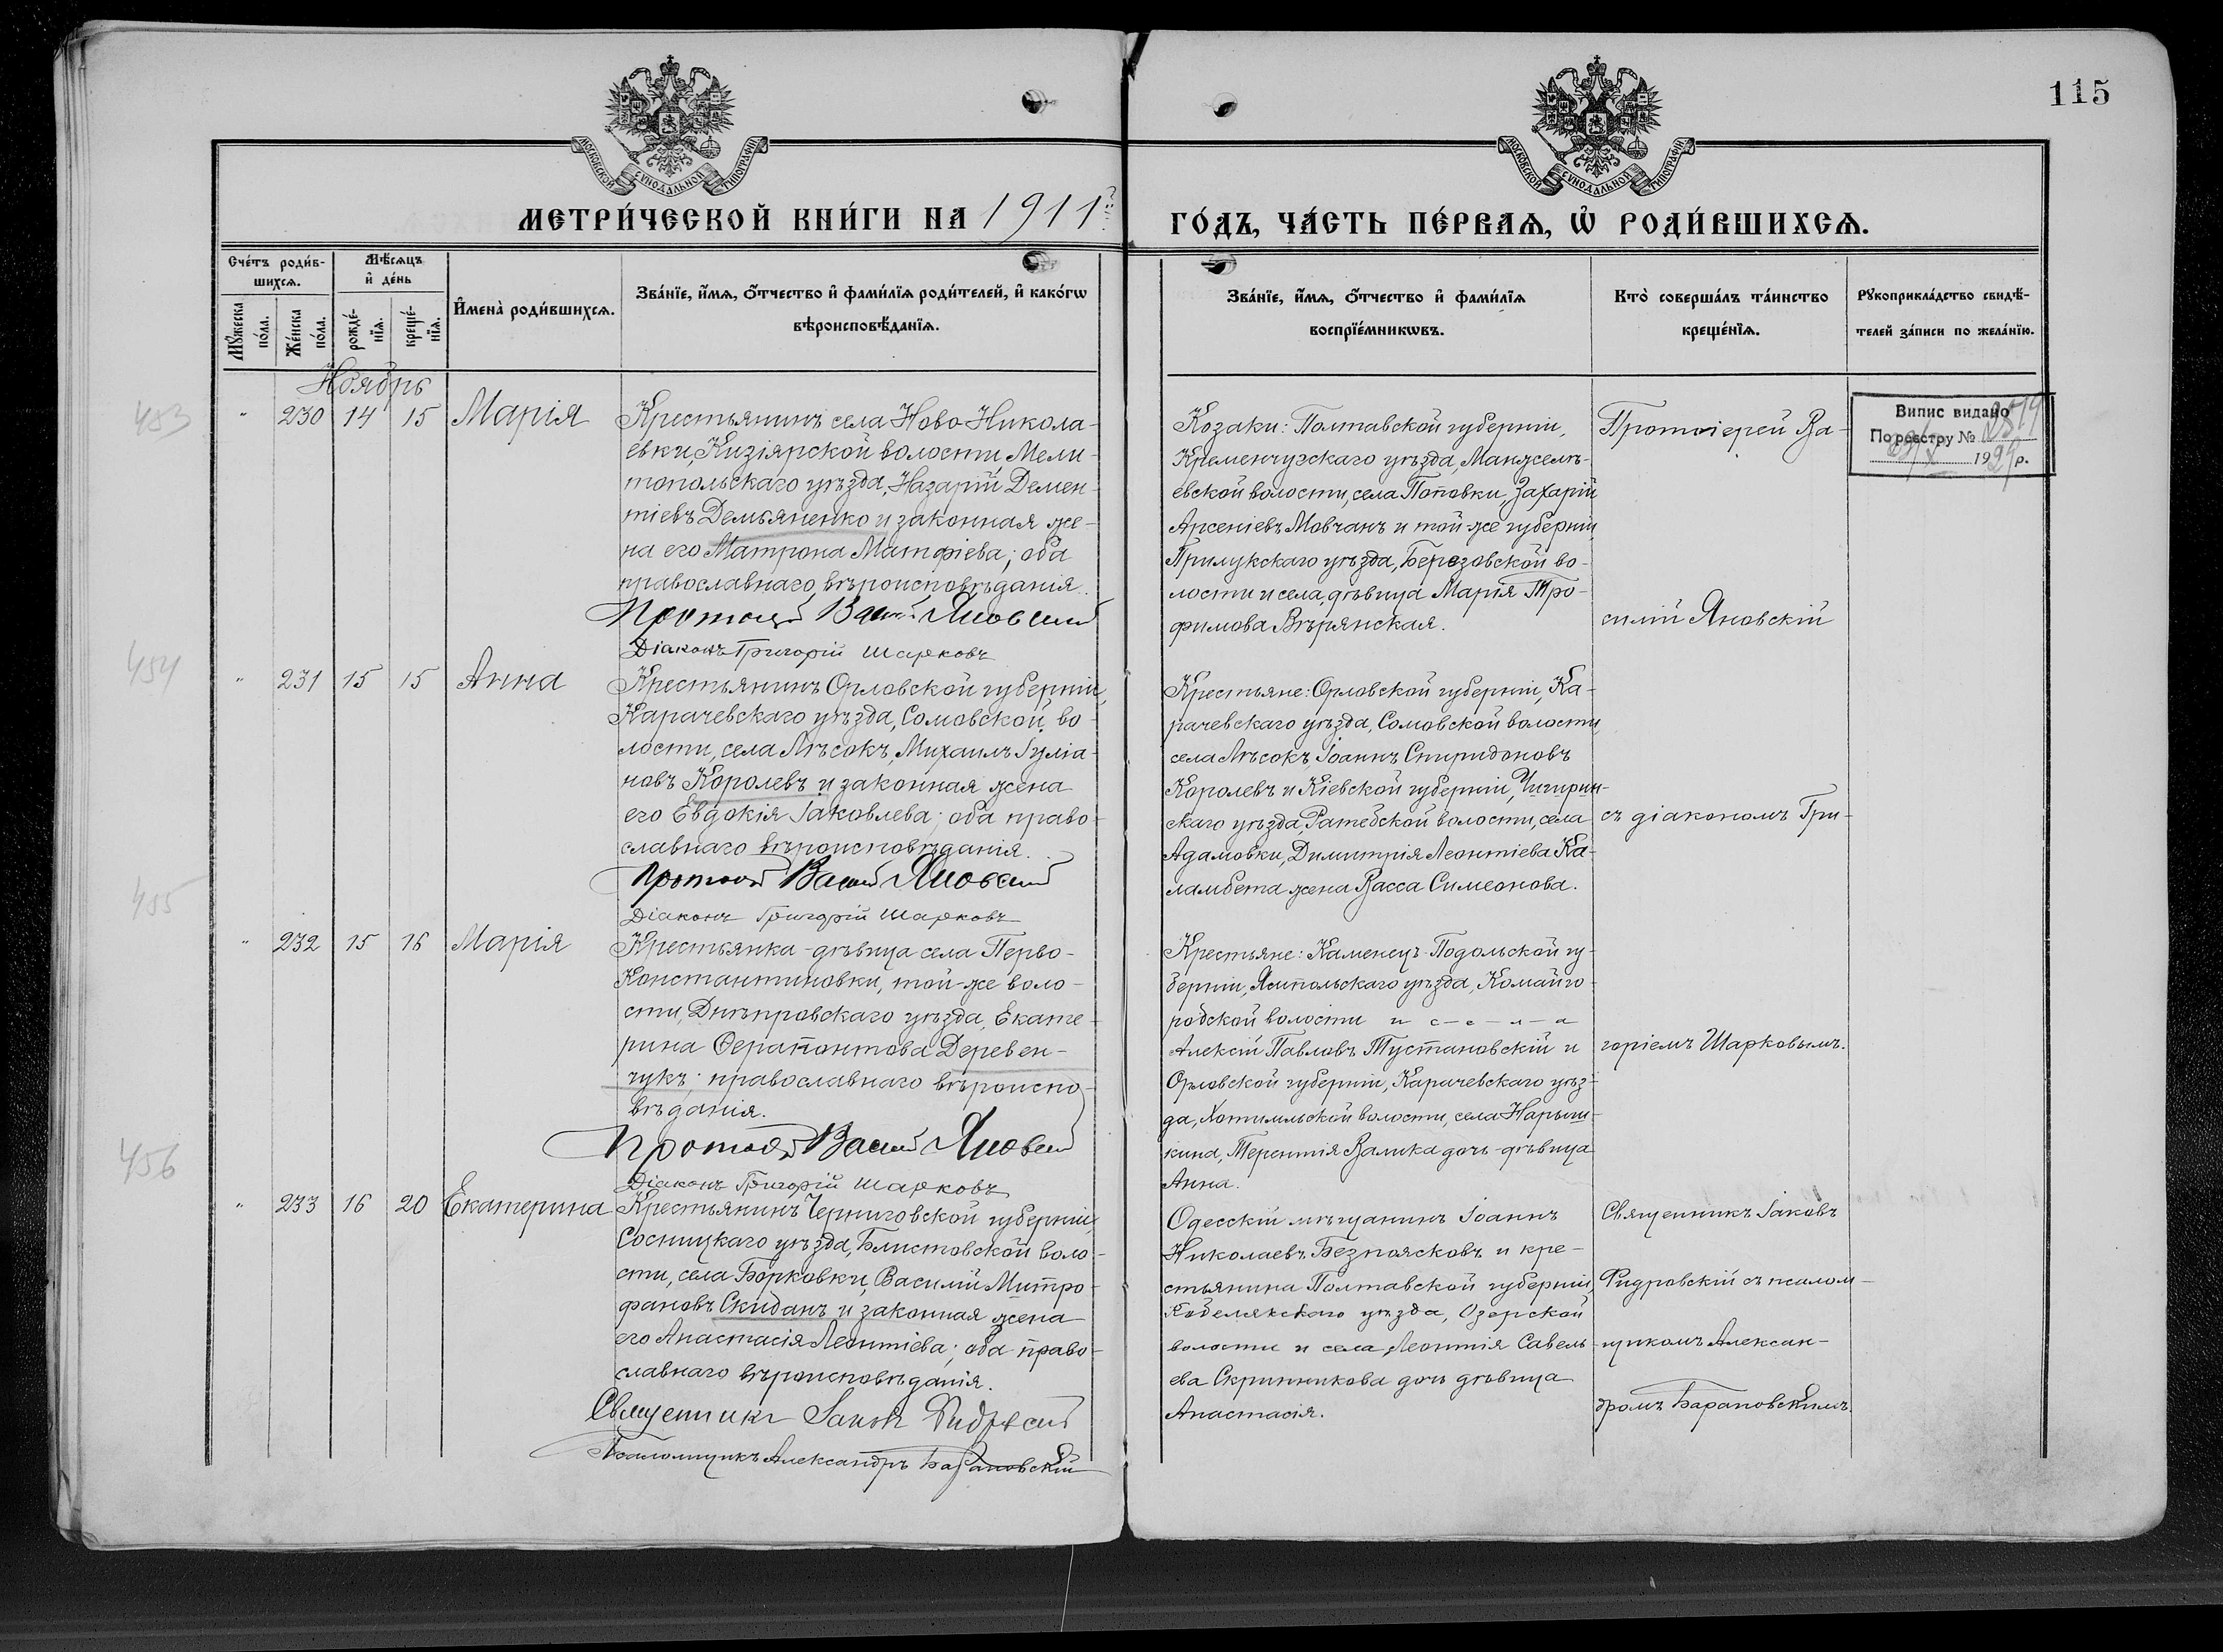 115
МОСКОВСКОЙ СѴНОДАЛЬНОЙ ТИПОГРАФІИ
МОСКОВСКОЙ СѴНОДАЛЬНОЙ ТИПОГРАФІИ
МЕТРИ́ЧЕСКОЙ КНИ́ГИ НА 1911 ГО́ДЪ, ЧА́СТЬ ПЕ́РВАѦ, Ѡ҆ РОДИ́ВШИХСѦ.
Сче́тъ роди́в-
шихсѧ.
Мѣ́сѧцъ
и҆ де́нь
Мꙋ́жеска
по́ла.
Же́нска
по́ла.
рожде́-
нїѧ.
креще́-
нїѧ.
И҆мена̀ роди́вшихсѧ.
Зва́нїе, и҆́мѧ, о҆́тчество и҆ фами́лїѧ роди́телей, и҆ како́гѡ
вѣроисповѣ́данїѧ.
Зва́нїе, и҆́мѧ, о҆́тчество и҆ фами́лїѧ
воспрїе́мникѡвъ.
Кто̀ соверша́лъ та́инство
креще́нїѧ.
Рꙋкоприкла́дство свидѣ́-
телей за́писи по жела́нїю.
Ноябрь
453
" 230 14 15 Марія
Крестьянинъ села Ново-Никола-
евки, Кизіярской волости Мели-
топольскаго уѣзда, Назарій Демен-
тіевъ Демьяненко и законная же-
на его Матрона Матфіева; оба
православнаго вѣроисповѣданія.
Протоіерей Василій Яновскій
Діаконъ Григорій Шарковъ
Козаки: Полтавской губерніи,
Кременчугскаго уѣзда, Манжелѣ-
евской волости, села Поповки, Захарій
Арсеніевъ Мовчанъ и той-же губерніи
Прилукскаго уѣзда, Березовской во-
лости и села, дѣвица Марія Тро-
фимова Вѣрянская.
Протоіерей Ва-
силій Яновскій
Випис видано
По реєстру № 2514
1924 р.
454
" 231 15 15 Анна
Крестьянинъ Орловской губерніи,
Карачевскаго уѣзда, Сомовской во-
лости, села Лѣсокъ, Михаилъ Іуліа-
новъ Королевъ и законная жена
его Евдокія Іаковлева; оба право-
славнаго вѣроисповѣданія.
Протоіерей Василій Яновскій
Діаконъ Григорій Шарковъ
Крестьяне: Орловской губерніи, Ка-
рачевскаго уѣзда, Сомовской волости,
села Лѣсокъ, Іоаннъ Спиридоновъ
Королевъ и Кіевской губерніи, Чигирин-
скаго уѣзда, Ратебской волости, села
Адамовки, Димитрія Леонтіева Ка-
ламбета жена Васса Симеонова.
съ діакономъ Гри-
455
" 232 15 16 Марія
Крестьянка-дѣвица села Перво-
Константиновки, той-же воло-
сти, Днѣпровскаго уѣзда, Екате-
рина Ѳерапонтова Деревен-
чукъ; православнаго вѣроиспо-
вѣданія.
Протоіерей Василій Яновскій
Діаконъ Григорій Шарковъ
Крестьяне: Каменецъ-Подольской гу-
берніи, Ямпольскаго уѣзда, Комайго-
родской волости и с-е-л-а
Алексій Павловъ Тустановскій и
Орловской губерніи, Карачевскаго уѣз-
да, Хотимльской волости, села Нарыш-
кина, Терентія Валика дочь-дѣвица
Анна.
горіемъ Шарковымъ.
456
" 233 16 20 Екатерина
Крестьянинъ Черниговской губерніи,
Сосницкаго уѣзда, Блистовской воло-
сти, села Борковки, Василій Митро-
фановъ Скиданъ и законная жена
его Анастасія Леонтіева; оба право-
славнаго вѣроисповѣданія.
Священникъ Іаковъ Фидровскій
Псаломщикъ Александръ Барановскій
Одесскій мѣщанинъ Іоаннъ
Николаевъ Безпоясковъ и кре-
стьянина Полтавской губерніи,
Кобелякскаго уѣзда, Озерской
волости и села, Леонтія Савель-
ева Скринникова дочь дѣвица
Анастасія.
Священникъ Іаковъ
Фидровскій съ псалом-
щикомъ Алексан-
дромъ Барановскимъ.